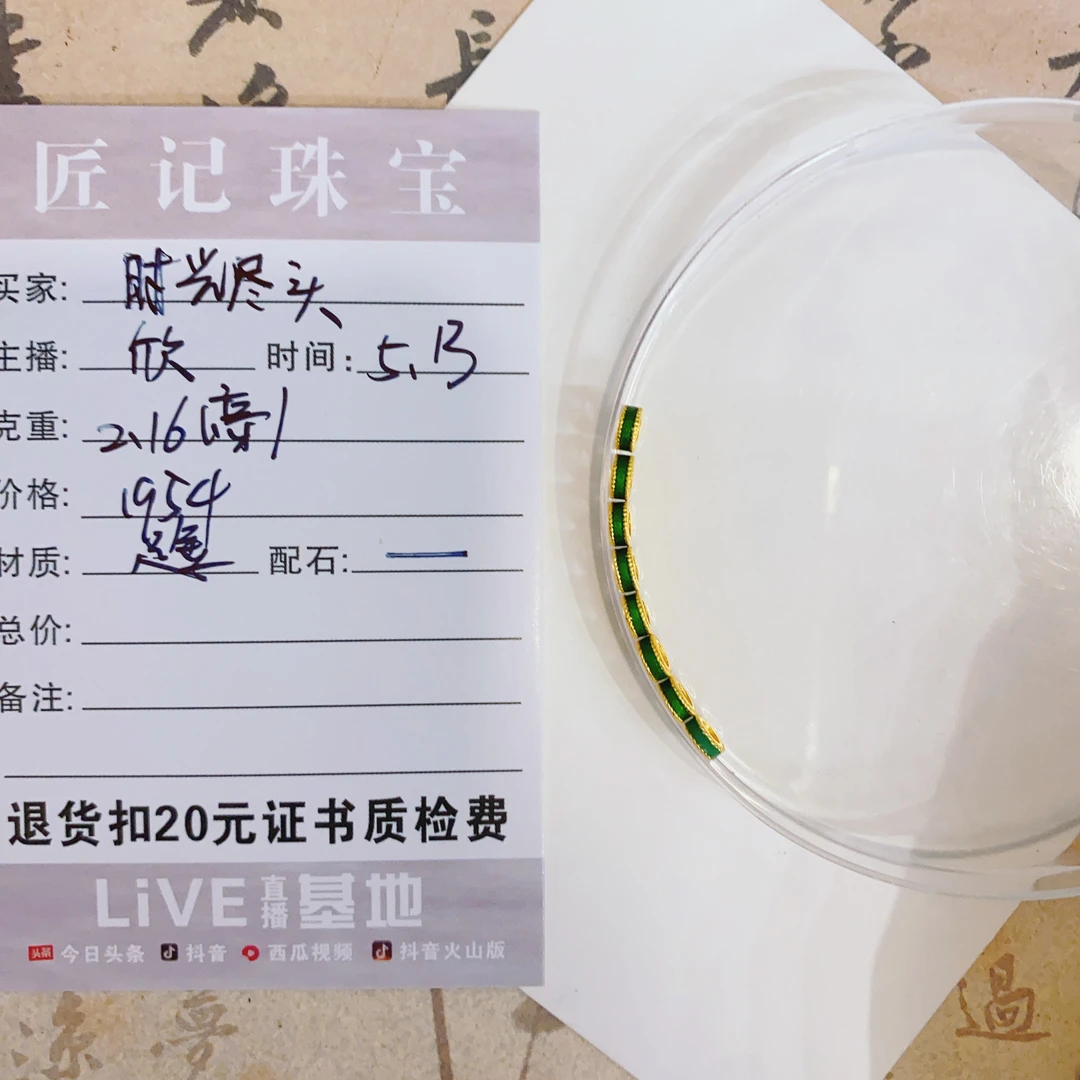 長
匠记珠宝
买家: 时光尽头
主播: 欣 时间: 5.13
克重: 2.16
价格: 1954
材质: 配石: —
总价:
备注:
退货扣20元证书质检费
LiVE直播基地
头条 今日头条 抖音 西瓜视频 抖音火山版
過
涼夢